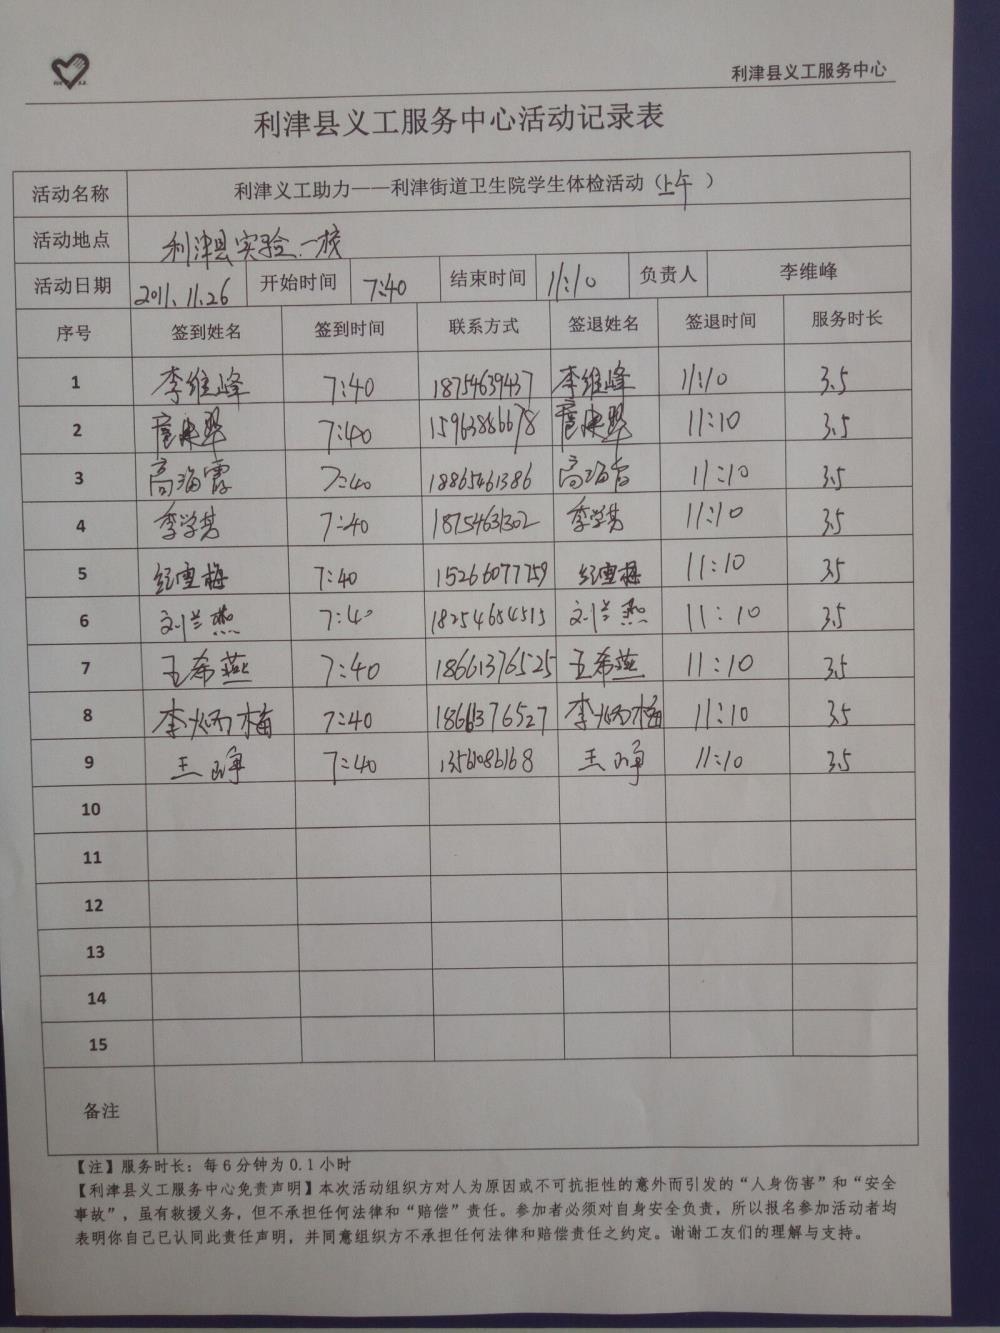 利津县义工服务中心
利津县义工服务中心活动记录表
活动名称 利津义工助力——利津街道卫生院学生体检活动（上午）
活动地点 利津县实验一校
活动日期 2011.11.26 开始时间 7:40 结束时间 11:10 负责人 李维峰
序号 签到姓名 签到时间 联系方式 签退姓名 签退时间 服务时长
1 李维峰 7:40 18754639437 李维峰 11:10 3.5
2 7:40 15963886678 11:10 3.5
3 高海霞 7:40 18865461386 高海霞 11:10 3.5
4 李学其 7:40 18754631302 李学其 11:10 3.5
5 纪雪梅 7:40 15266077759 纪雪梅 11:10 3.5
6 刘兰燕 7:40 18254654515 刘兰燕 11:10 3.5
7 王希燕 7:40 18661376525 王希燕 11:10 3.5
8 李炳梅 7:40 18661376527 李炳梅 11:10 3.5
9 王峥 7:40 13561086168 王峥 11:10 3.5
10
11
12
13
14
15
备注
【注】服务时长：每6分钟为0.1小时
【利津县义工服务中心免责声明】本次活动组织方对人为原因或不可抗拒性的意外而引发的“人身伤害”和“安全
事故”，虽有救援义务，但不承担任何法律和“赔偿”责任。参加者必须对自身安全负责，所以报名参加活动者均
表明你自己已认同此责任声明，并同意组织方不承担任何法律和赔偿责任之约定。谢谢工友们的理解与支持。